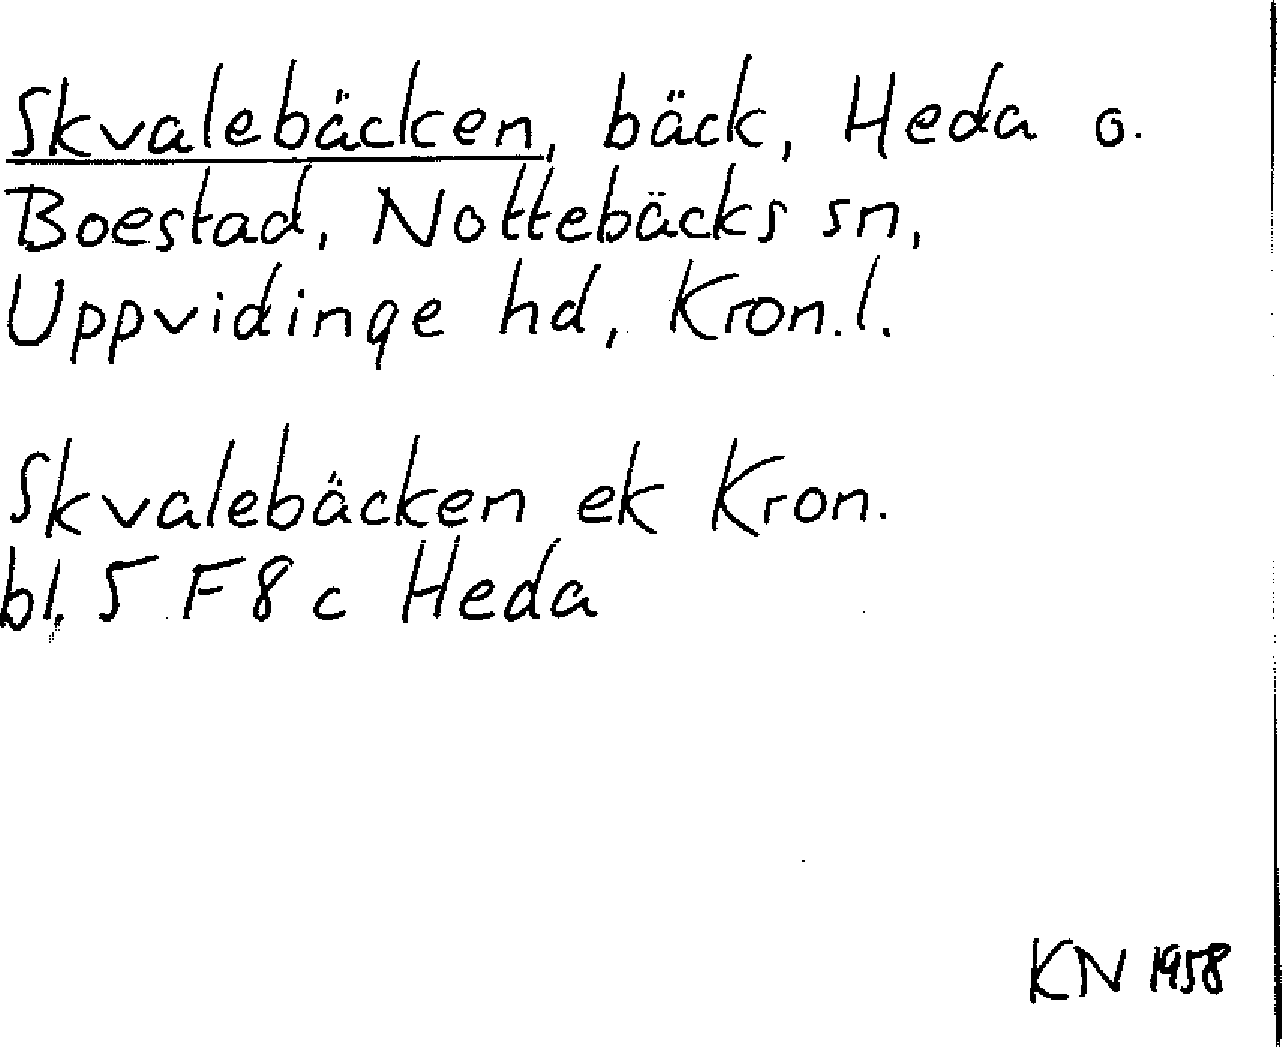 Skvalebäcken, bäck, Heda o.
Boestad, Nottebäcks sn,
Uppvidinge hd, Kron.l.
Skvalebäcken ek Kron.
bl. 5 F 8 c Heda
KN 1958